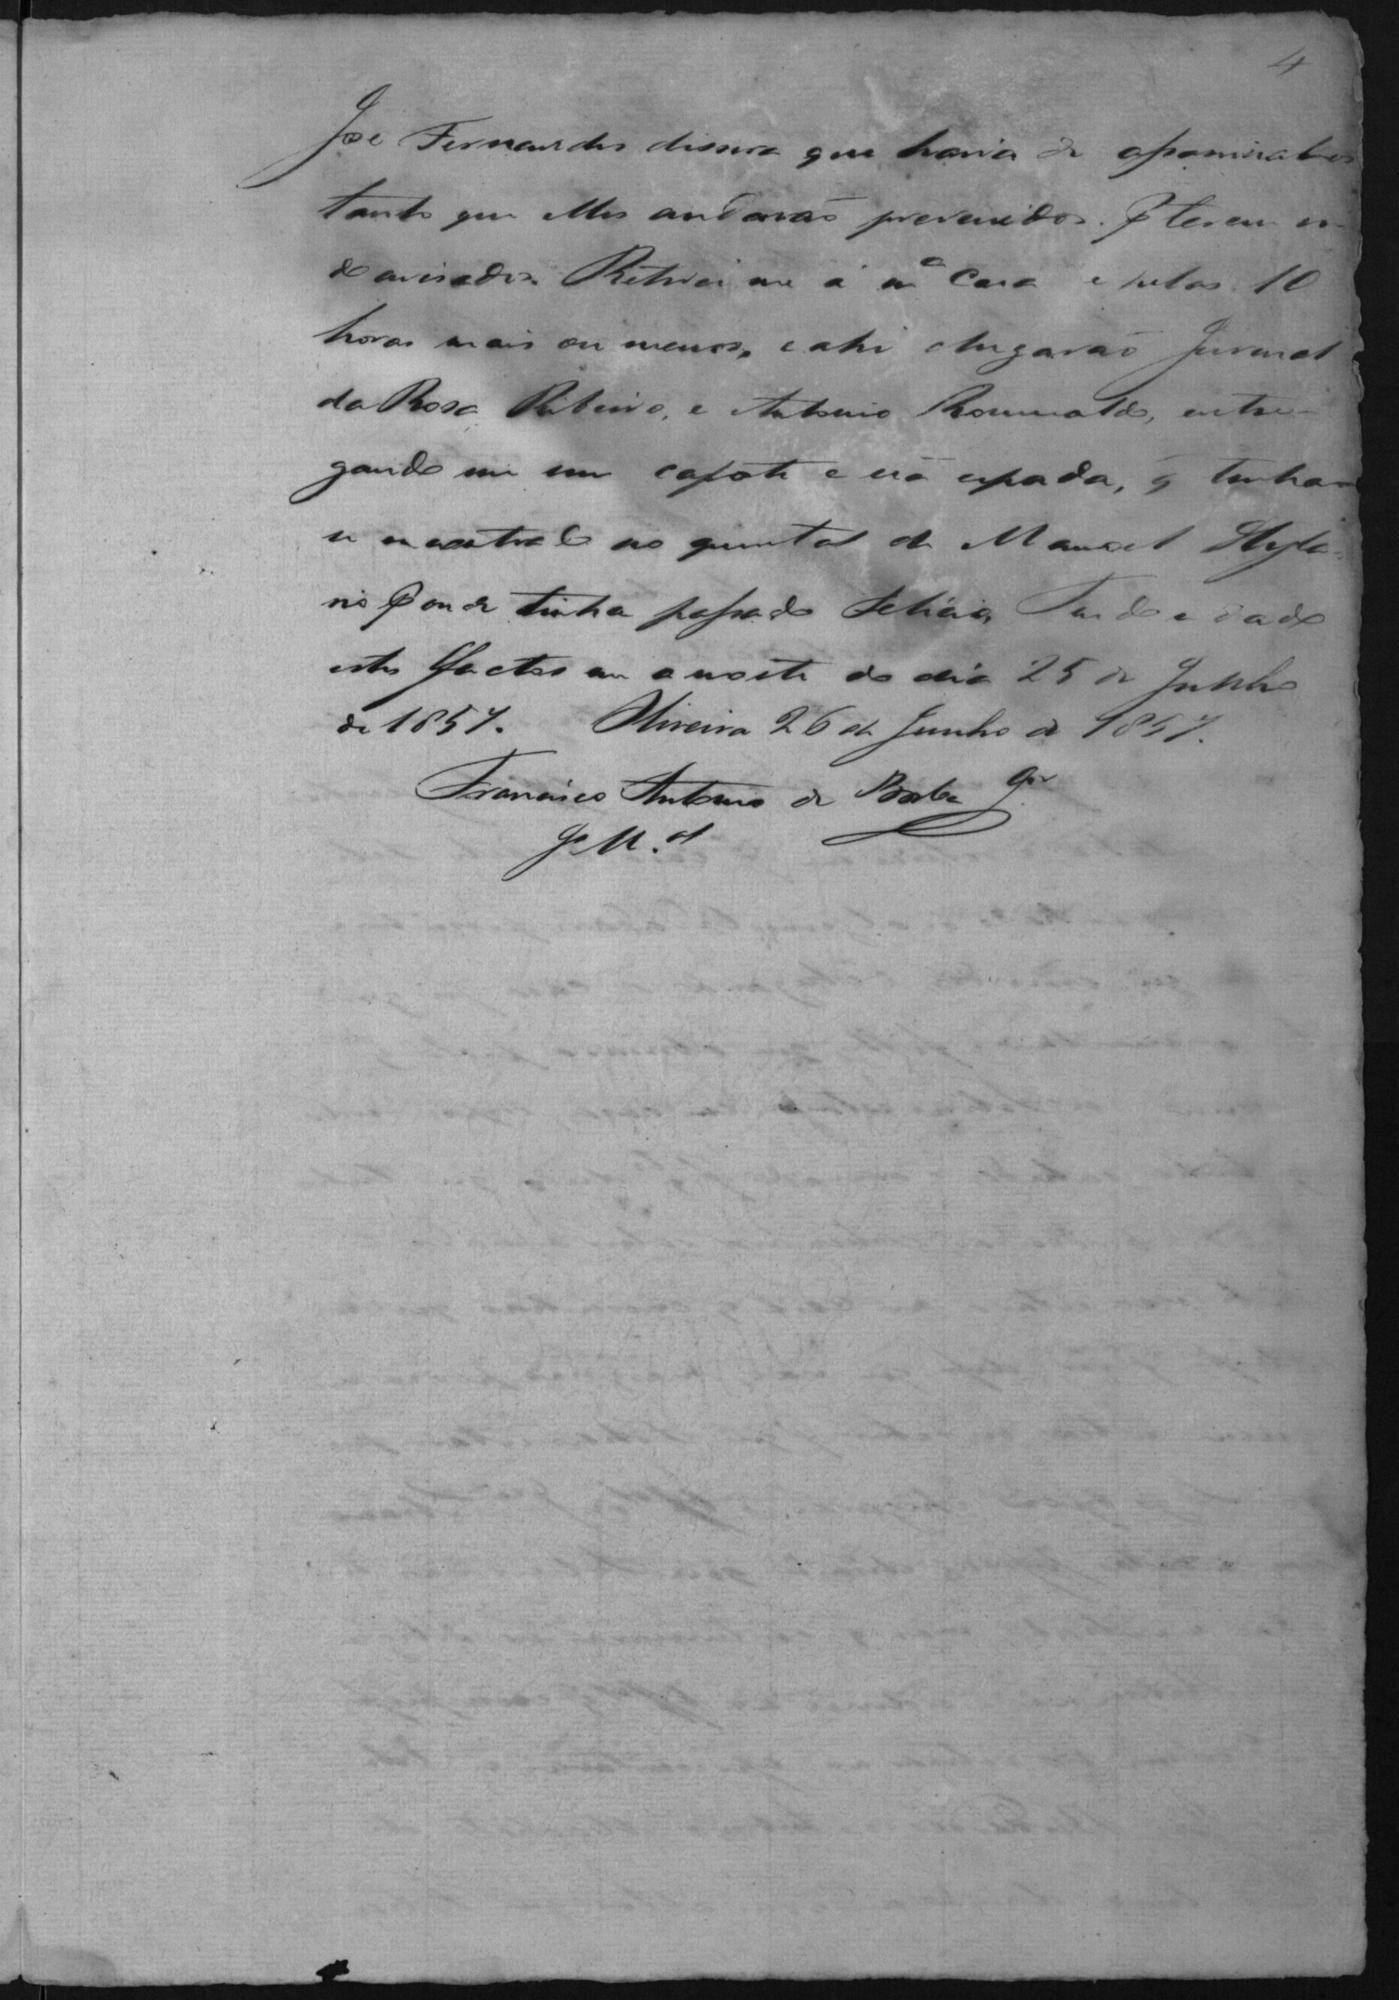 4
José Fernandes dissera que havia de
tanto que elles andavão prevenidos. P terem si-
do avisados. Retirei me á mª Casa e pelas 10
horas mais ou menos, e ahi chegarão Juvenal
da Rosa Ribeiro, e Antonio Romualdo, entre-
gando me um capote e uã espada, q̃ tinhão
se encontrado no quintal de Manoel Hyla-
rio P onde tinha passado Felicio, Tendo e dado
estes factos em a noite do dia 25 de Junho
de 1857. Oliveira 26 de Junho de 1857.
Francisco Antonio de Borba